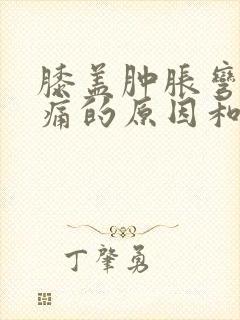 膝盖肿胀弯
痛的原因和
丁肇勇